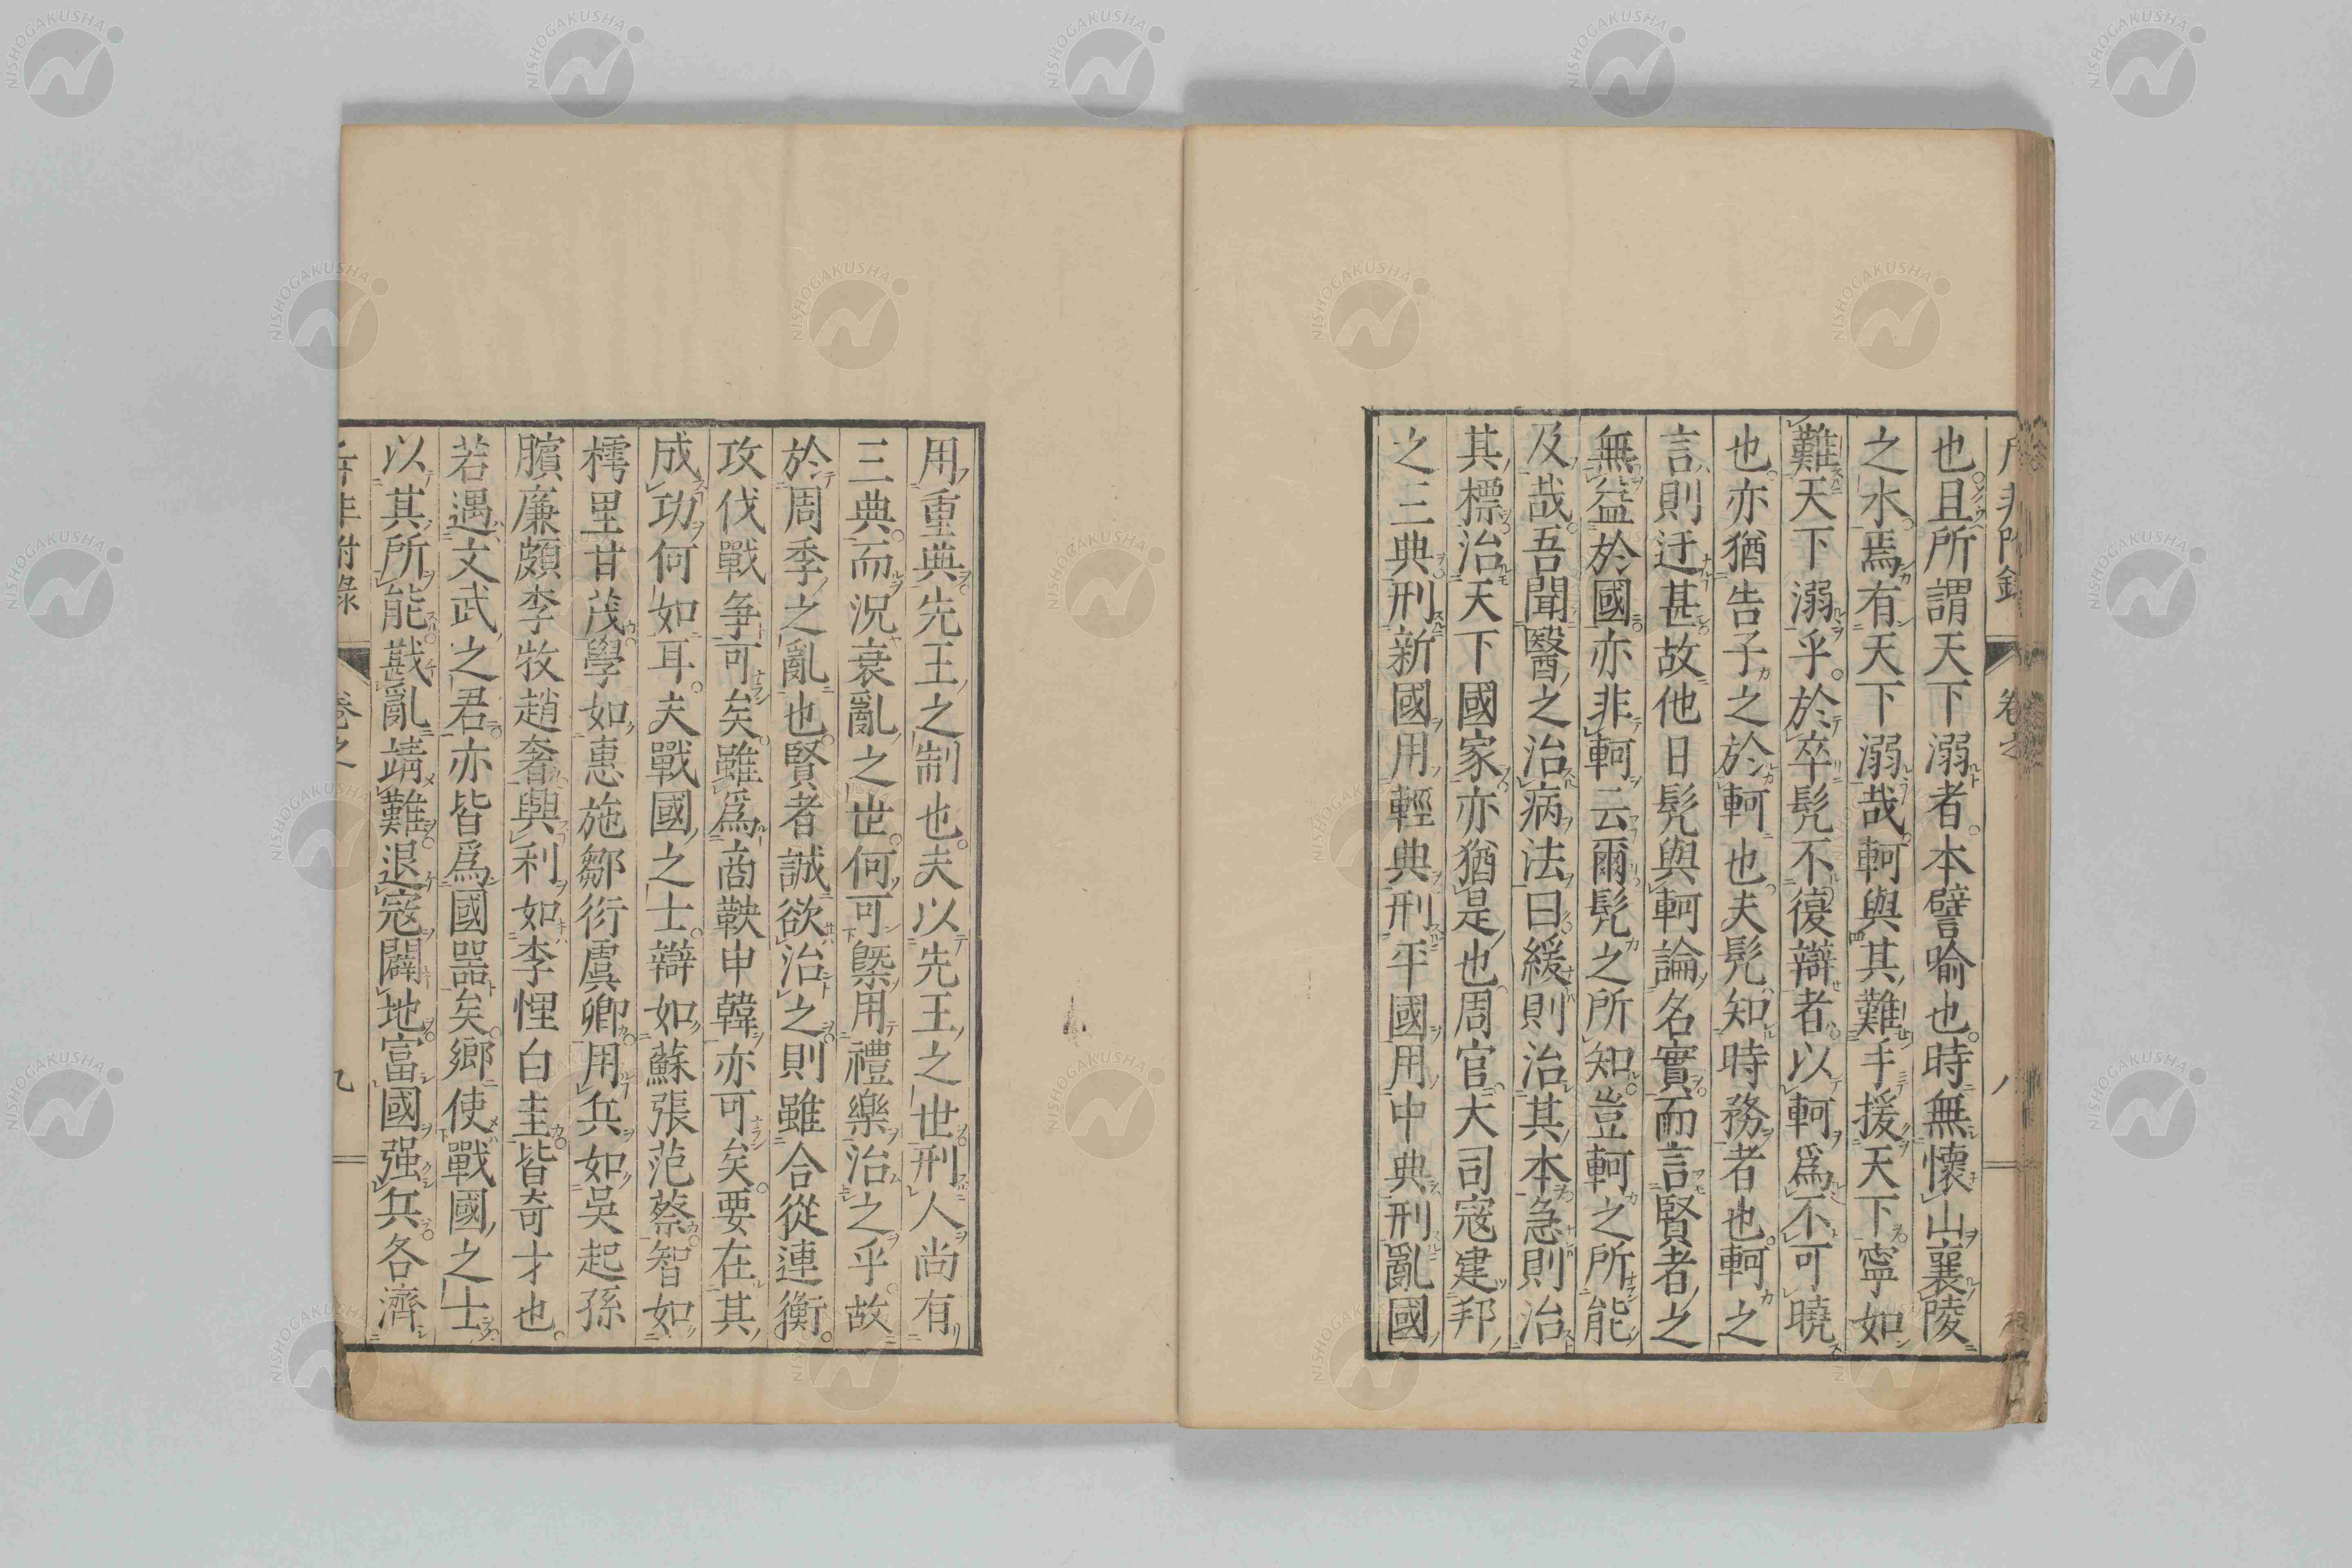 也且所謂天下溺者本譬喻也時無懷山襄陵
之水焉有天下溺哉軻與其難手援天下寧如
難天下溺乎於卒髠不復辯者以軻爲不可曉
也亦猶告子之於軻也夫髠知時務者也軻之
言則迂甚故他日髠與軻論名實而言賢者之
無益於國亦非軻云爾髠之所知豈軻之所能
及哉吾聞醫之治病法曰緩則治其本急則治
其標治天下國家亦猶是也周官大司寇建邦
之三典刑新國用輕典刑平國用中典刑亂國
用重典先王之制也夫以先王之世刑人尚有
三典而況衰亂之世何可槩用禮樂治之乎故
於周季之亂也賢者誠欲治之則雖合從連衡
攻伐戰爭可矣雖爲商鞅申韓亦可矣要在其
成功何如耳夫戰國之士辯如蘇張范蔡智如
樗里甘茂學如惠施鄒衍虞卿用兵如吳起孫
臏廉頗李牧趙奢興利如李悝白圭皆奇才也
若遇文武之君亦皆爲國器矣鄉使戰國之士
以其所能戡亂靖難退寇闢地富國强兵各濟
非附錄 卷之 九
NISHOGAKUSHA